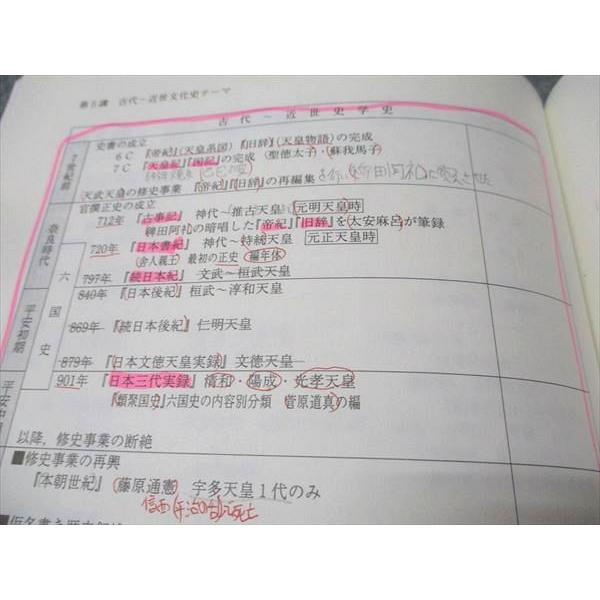 第5講 古代~近世文化史テーマ
古代~近世史学史
7世紀前
史書の成立
6C 『帝紀』(天皇系図)『旧辞』(天皇物語)の完成
7C 『天皇記』『国記』の完成 (聖徳太子・蘇我馬子)
天武天皇の修史事業 『帝紀』『旧辞』の再編集
官撰正史の成立
奈良時代
712年 『古事記』 神代~推古天皇 元明天皇時
稗田阿礼の暗唱した『帝紀』『旧辞』を太安麻呂が筆録
720年 『日本書紀』 神代~持統天皇 元正天皇時
(舎人親王) 最初の正史 編年体
六国史
797年 『続日本紀』 文武~桓武天皇
平安初期
840年 『日本後紀』 桓武~淳和天皇
869年 『続日本後紀』 仁明天皇
879年 『日本文徳天皇実録』 文徳天皇
901年 『日本三代実録』 清和・陽成・光孝天皇
『類聚国史』六国史の内容別分類 菅原道真の編
平安中
以降,修史事業の断絶
■修史事業の再興
『本朝世紀』(藤原通憲) 宇多天皇1代のみ
信西